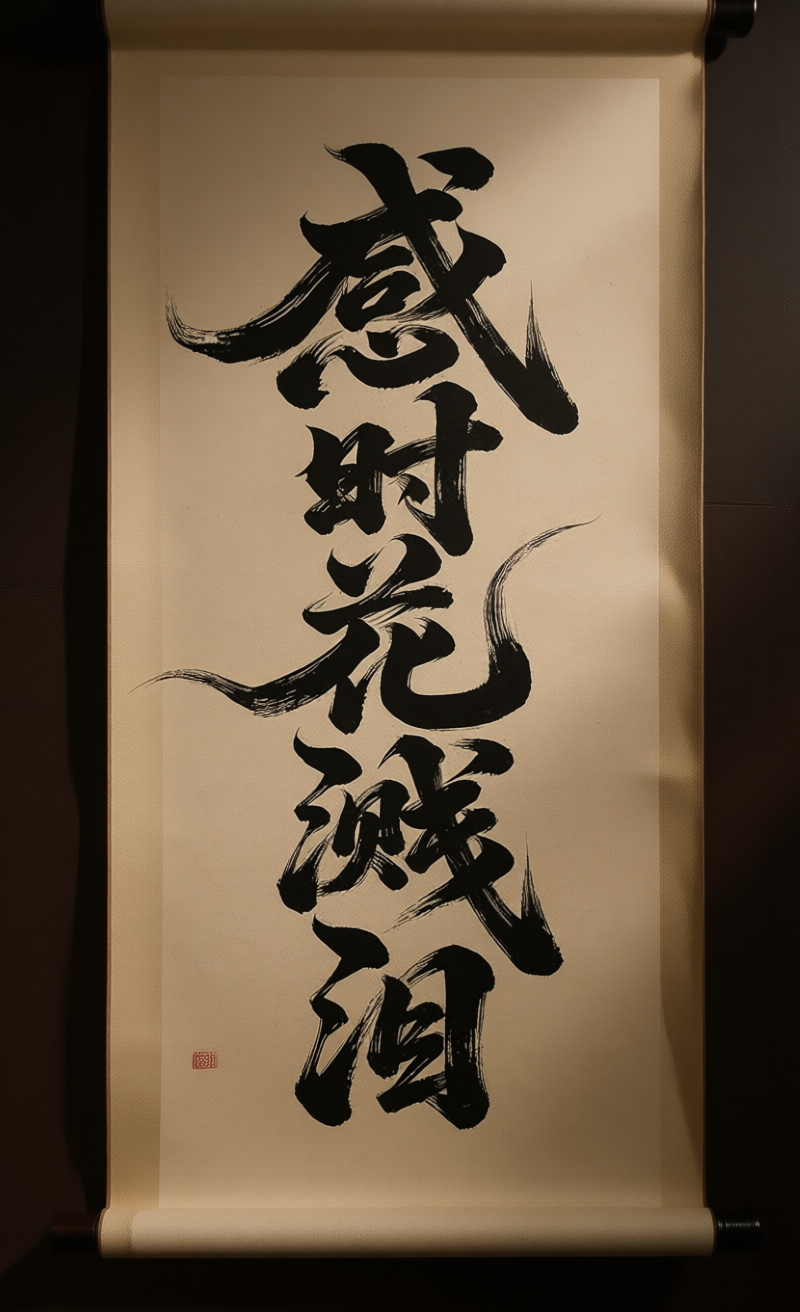 感时花溅泪